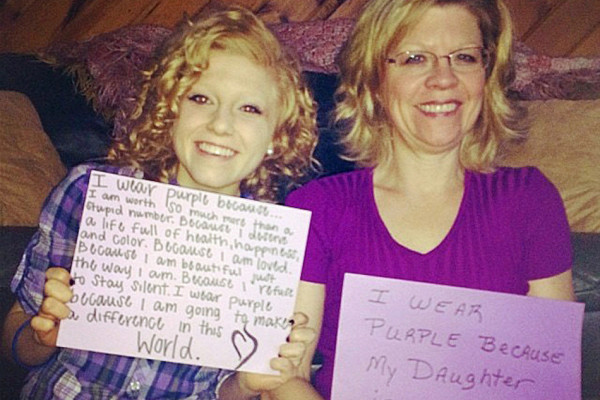 I wear purple because...
I am worth so much more than a
stupid number. Because I deserve
a life full of health, happiness,
and color. Because I am loved.
Because I am beautiful just
the way I am. Because I refuse
to stay silent. I wear purple
because I am going to make
a difference in this
World.
I WEAR
PURPLE BECAUSE
MY DAUGHTER